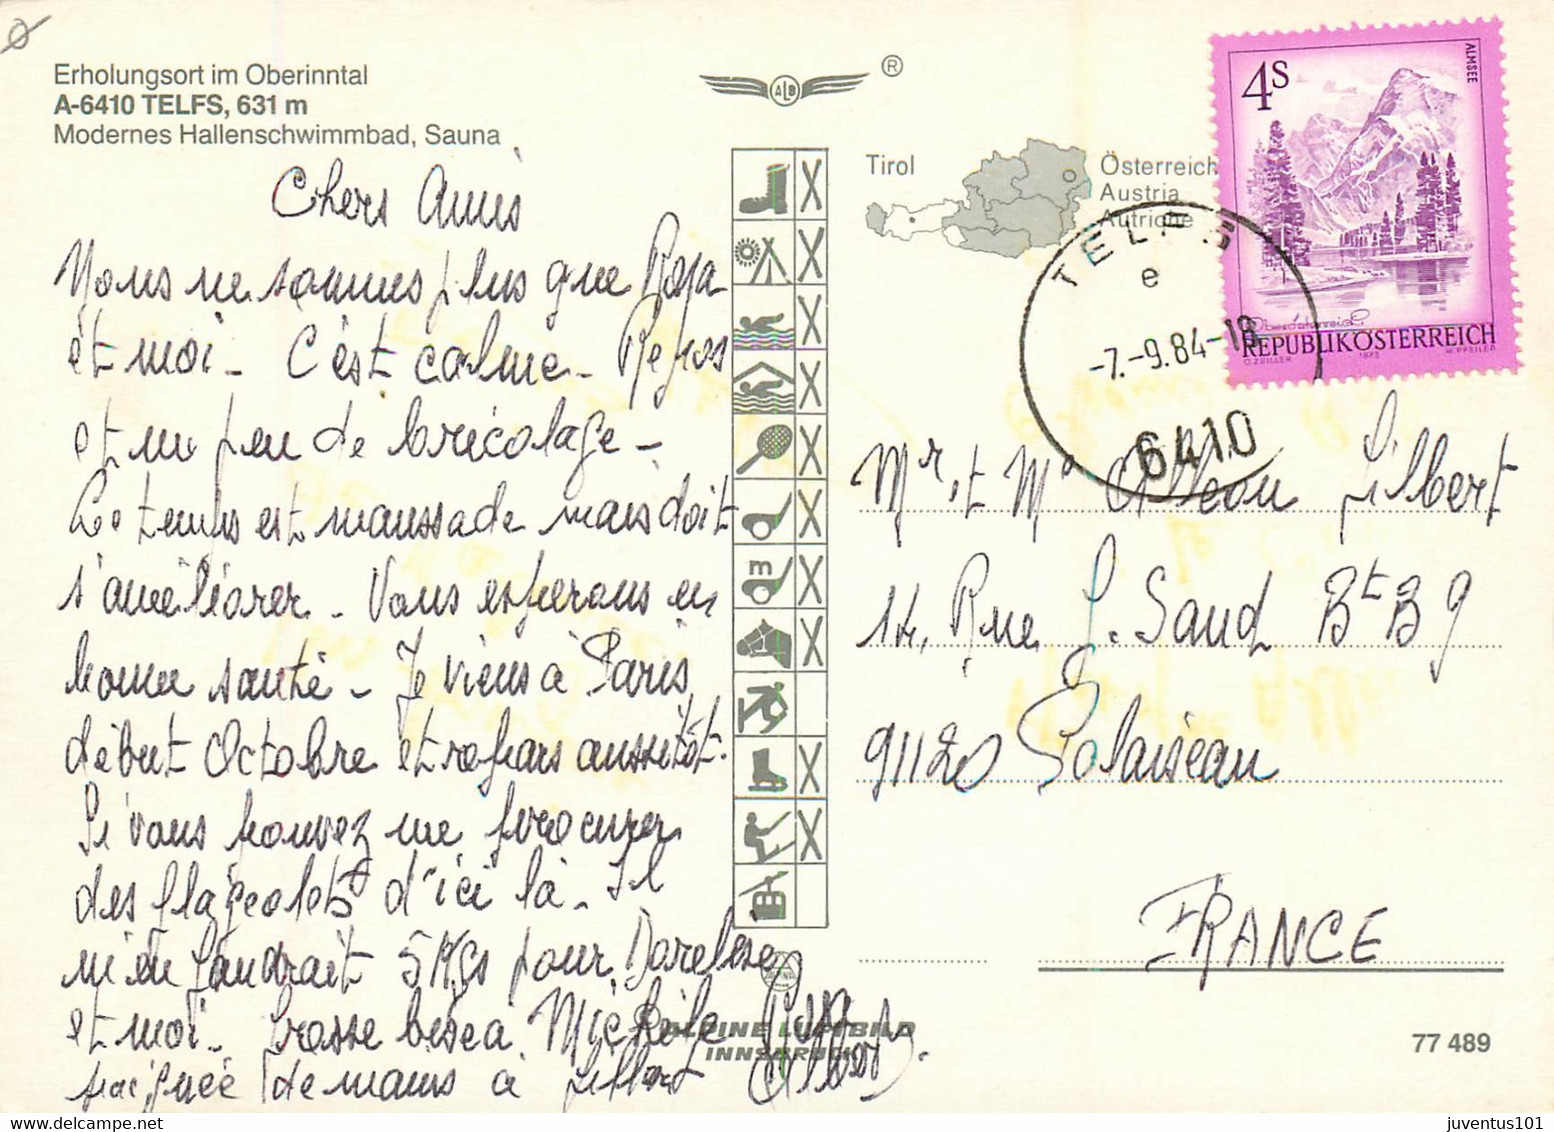 Erholungsort im Oberinntal
A-6410 TELFS, 631 m
Modernes Hallenschwimmbad, Sauna
ALB
®
Tirol
Österreich
Austria
Autriche
4S
ALMSEE
Oberösterreich
REPUBLIK ÖSTERREICH
O. ZEILLER 1973 W. PFEILER
TELFS
e
-7.-9.84-18
6410
Chers Amis
Nous ne sommes plus que
et moi - C'est calme - Repos
et un peu de bricolage -
Le temps est maussade mais doit
s'améliorer - Vous espérons en
bonne santé - Je viens à Paris
début Octobre et repars aussitôt.
Si vous pouvez me procurer
des flageolets d'ici là - Il
m'en faudrait 5 Kgs pour
et moi - Grosse bise à Michèle
poignée de mains à Gilbert
m
Mr et Me Gilbert
14, Rue G. Sand Bt B9
91120 Palaiseau
FRANCE
ALPINE LUFTBILD
INNSBRUCK
77 489
juventus101